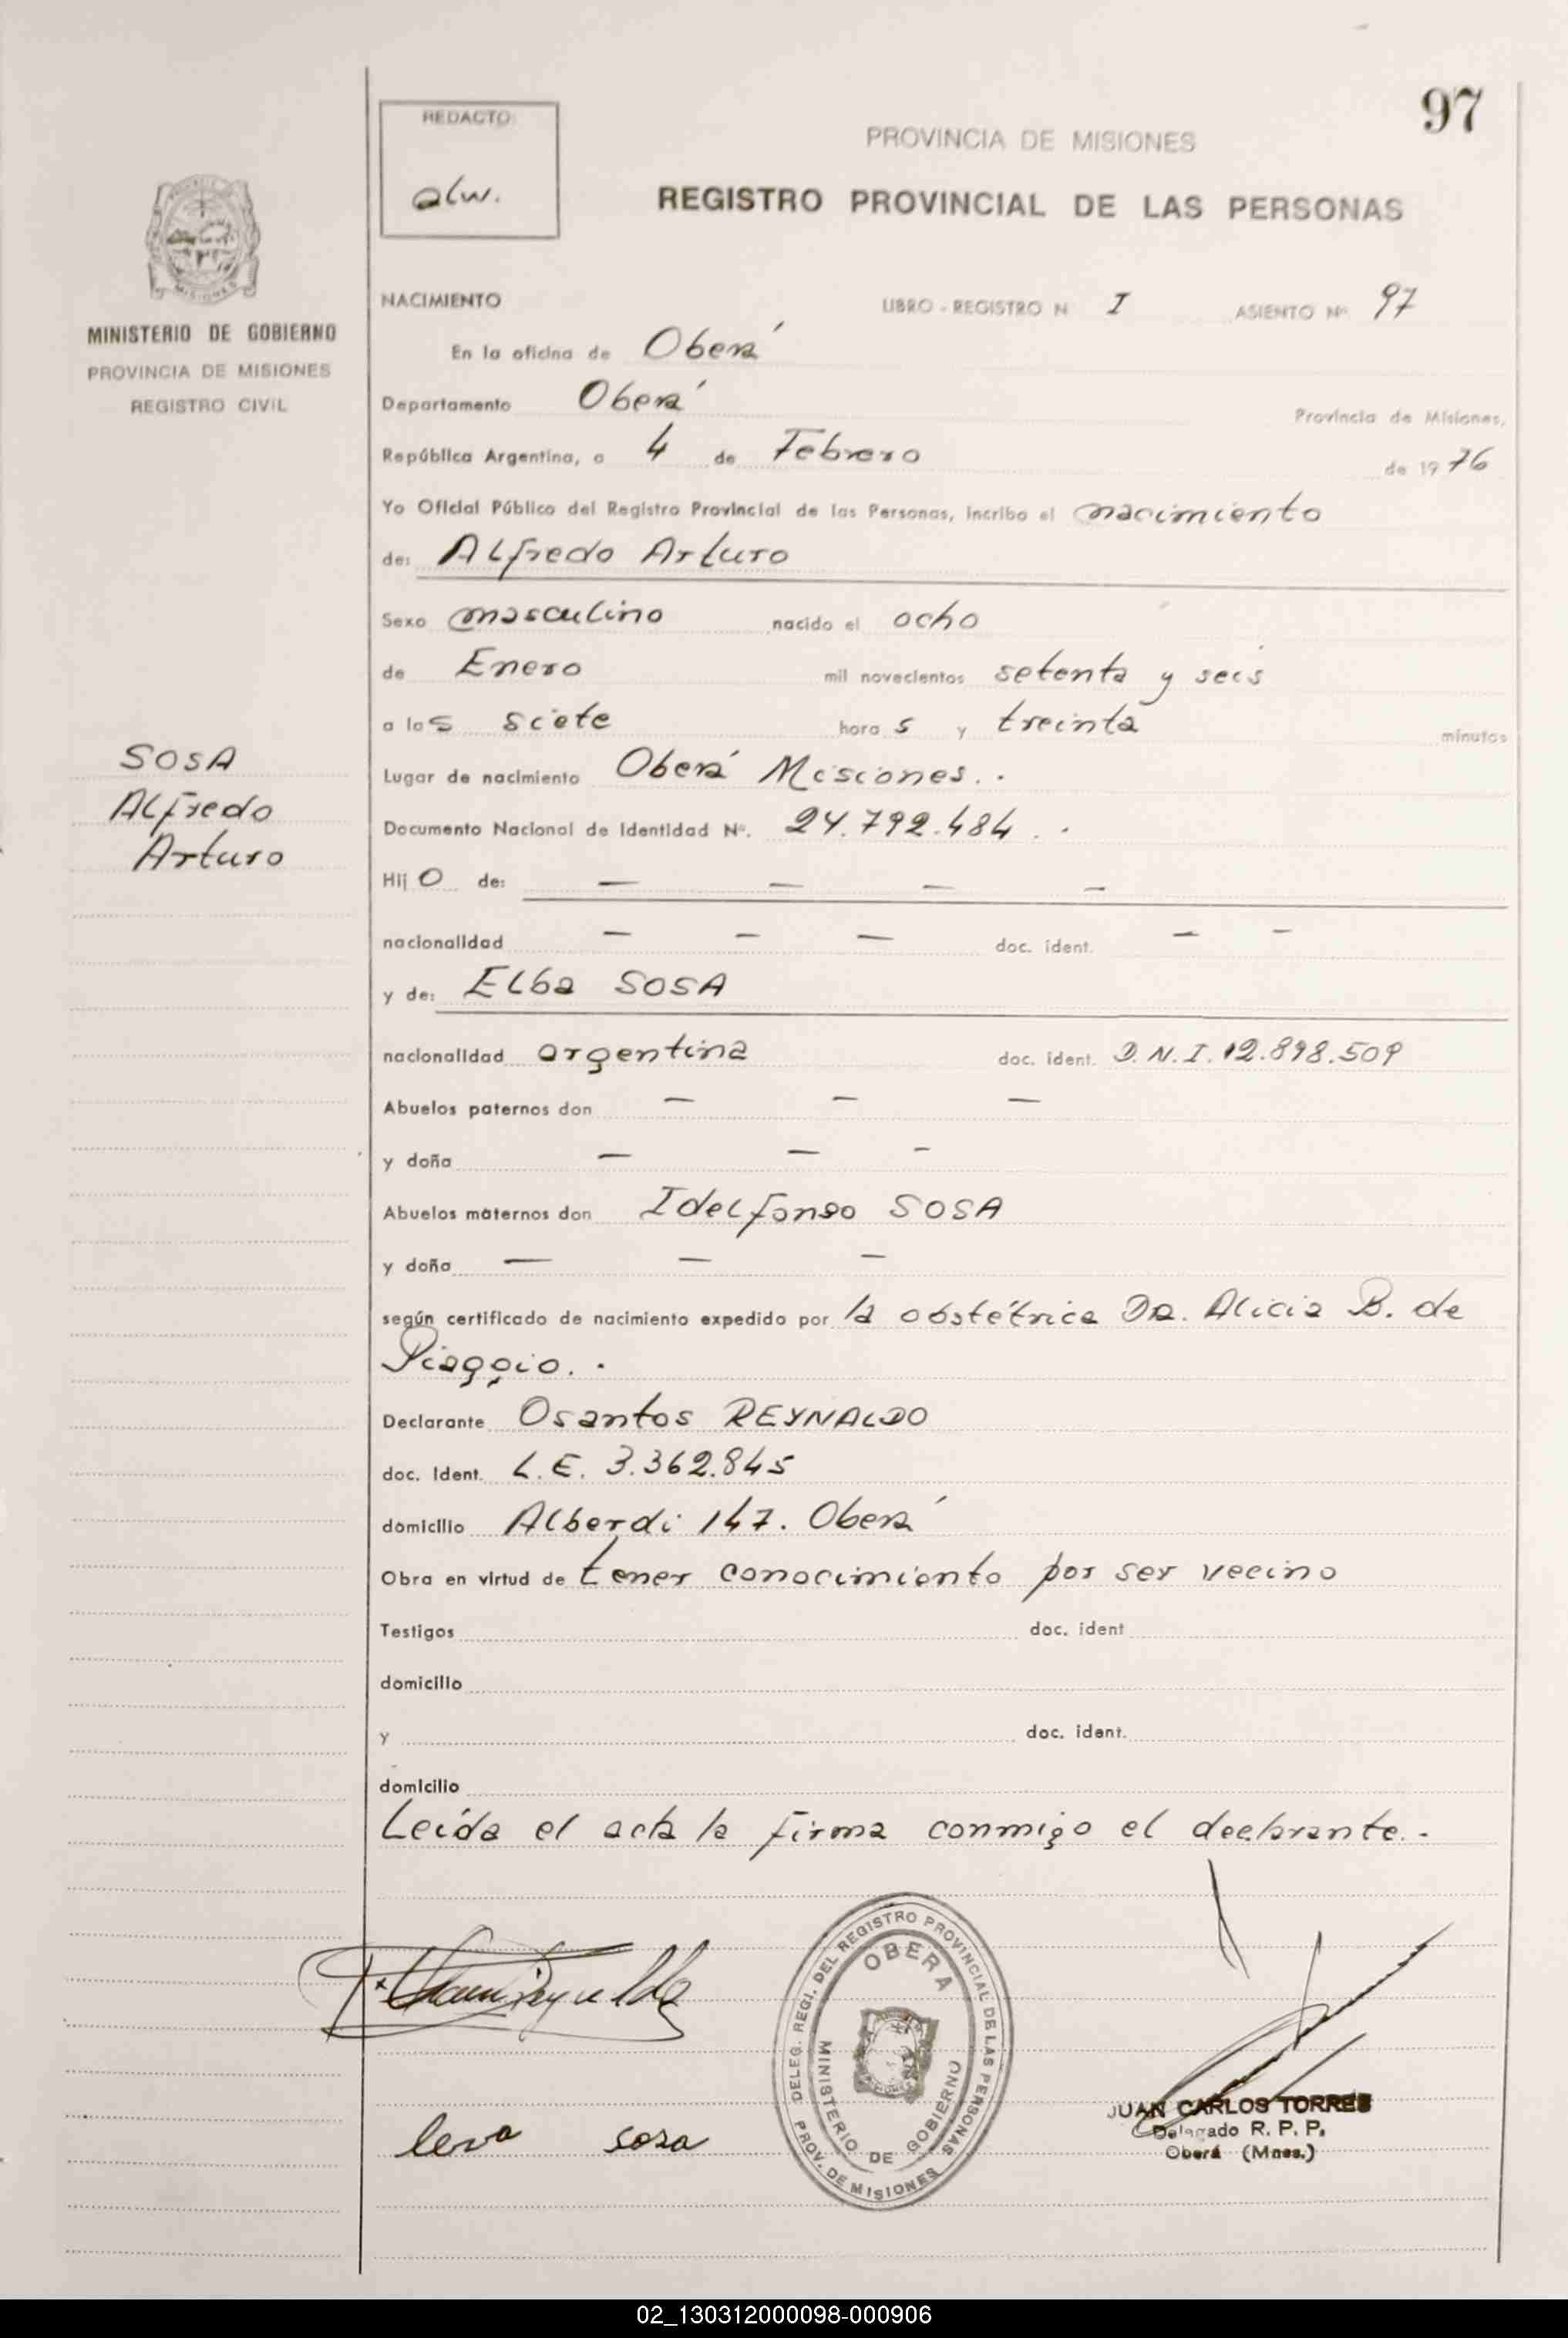 97
REDACTO:
alw.
PROVINCIA DE MISIONES
REGISTRO PROVINCIAL DE LAS PERSONAS
MISIONES
MINISTERIO DE GOBIERNO
PROVINCIA DE MISIONES
REGISTRO CIVIL
NACIMIENTO LIBRO - REGISTRO N I ASIENTO Nº 97
En la oficina de Oberá
Departamento Oberá Provincia de Misiones,
República Argentina, a 4 de Febrero de 1976
Yo Oficial Público del Registro Provincial de las Personas, incribo el nacimiento
de: Alfredo Arturo
Sexo masculino nacido el ocho
de Enero mil novecientos setenta y seis
a las siete horas y treinta minutos
SOSA
Alfredo
Arturo
Lugar de nacimiento Oberá Misiones. .
Documento Nacional de Identidad Nº. 24.792.484 . .
Hijo de: — — — —
nacionalidad — — — doc. ident. — —
y de: Elba SOSA
nacionalidad argentina doc. ident. D.N.I. 12.898.509
Abuelos paternos don — — —
y doña — — -
Abuelos maternos don Idelfonso SOSA
y doña — — —
según certificado de nacimiento expedido por la obstétrica Dra. Alicia B. de
Piaggio. .
Declarante Osantos REYNALDO
doc. Ident. L.E. 3.362.845
domicilio Alberdi 147. Oberá
Obra en virtud de tener conocimiento por ser vecino
Testigos doc. ident
domicilio
y doc. ident.
domicilio
Leída el acta la firma conmigo el declarante. -
DELEG. REGI. DEL REGISTRO PROVINCIAL DE LAS PERSONAS
PROV. DE MISIONES
OBERA
MINISTERIO DE GOBIERNO
JUAN CARLOS TORRES
Delegado R. P. P.
Oberá (Mnes.)
sosa
02_130312000098-000906